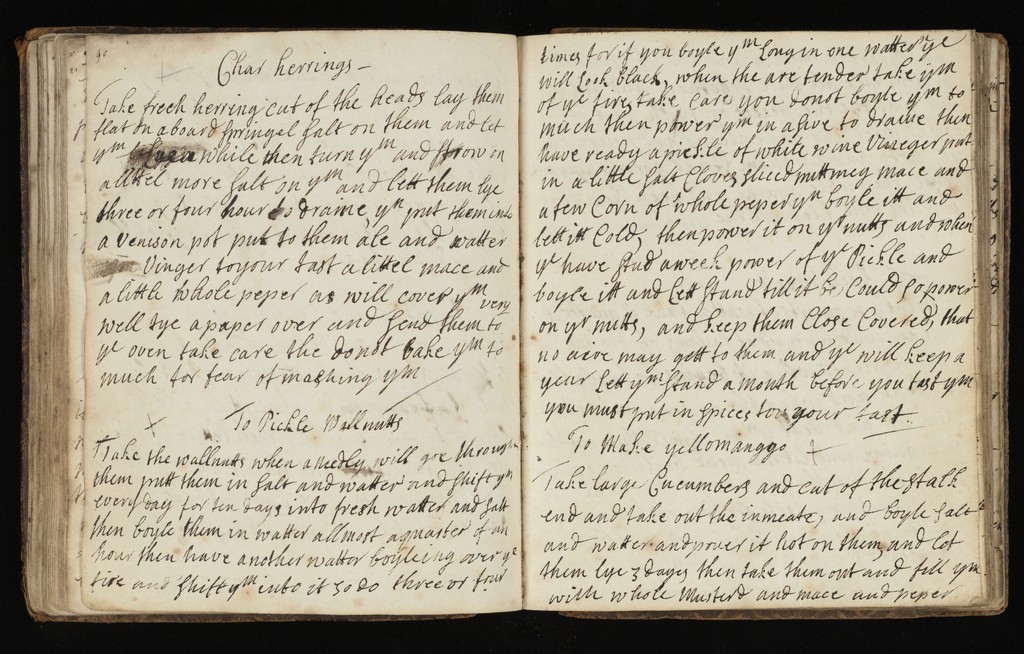 40
Char herrings -
Take fresh herring cut of the heads lay them
flat on a board springel salt on them and let
ym Lye a while then turn ym and strow on
a littel more salt on ym and lett them lye
three or four hour to draine yn put them into
a venison pot put to them ale and watter
Vinger to your tast a littel mace and
a little whole peper as will cover ym very
well tye a paper over and send them to
ye oven take care the donot bake ym to
much for fear of mashing ym
To Pickle Wallnutts
Take the wallnutts when a needly will goe through
them putt them in salt and watter and shift ym
every day for ten days into fresh watter and salt
then boyle them in watter allmost a quarter of an
hour then have another watter boyleing over ye
fire and shift ym into it so do three or four
times for if you boyle ym Long in one watter ye
will Look black, when the are tender take ym
of ye fire, take care you donot boyle ym to
much then power ym in a sive to draine then
have ready a pickle of white wine Vineger put
in a little salt Cloves sliced nuttmeg mace and
a few Corn of whole peper yn boyle itt and
lett itt Cold, then power it on yr nutts and when
ye have stud a week power of ye Pickle and
boyle itt and Lett stand till it be Could so power
on yr nutts, and keep them Close Covered, that
no aire may gett to them and ye will keep a
year Lett ym stand a month before you tast ym
you must put in spices to your tast
To Make yellomanggo
Take large Cucumbers and cut of the stalk
end and take out the inmeate, and boyle salt
and watter and power it hot on them and let
them lye 3 days then take them out and fill ym
with whole Musterd and mace and peper